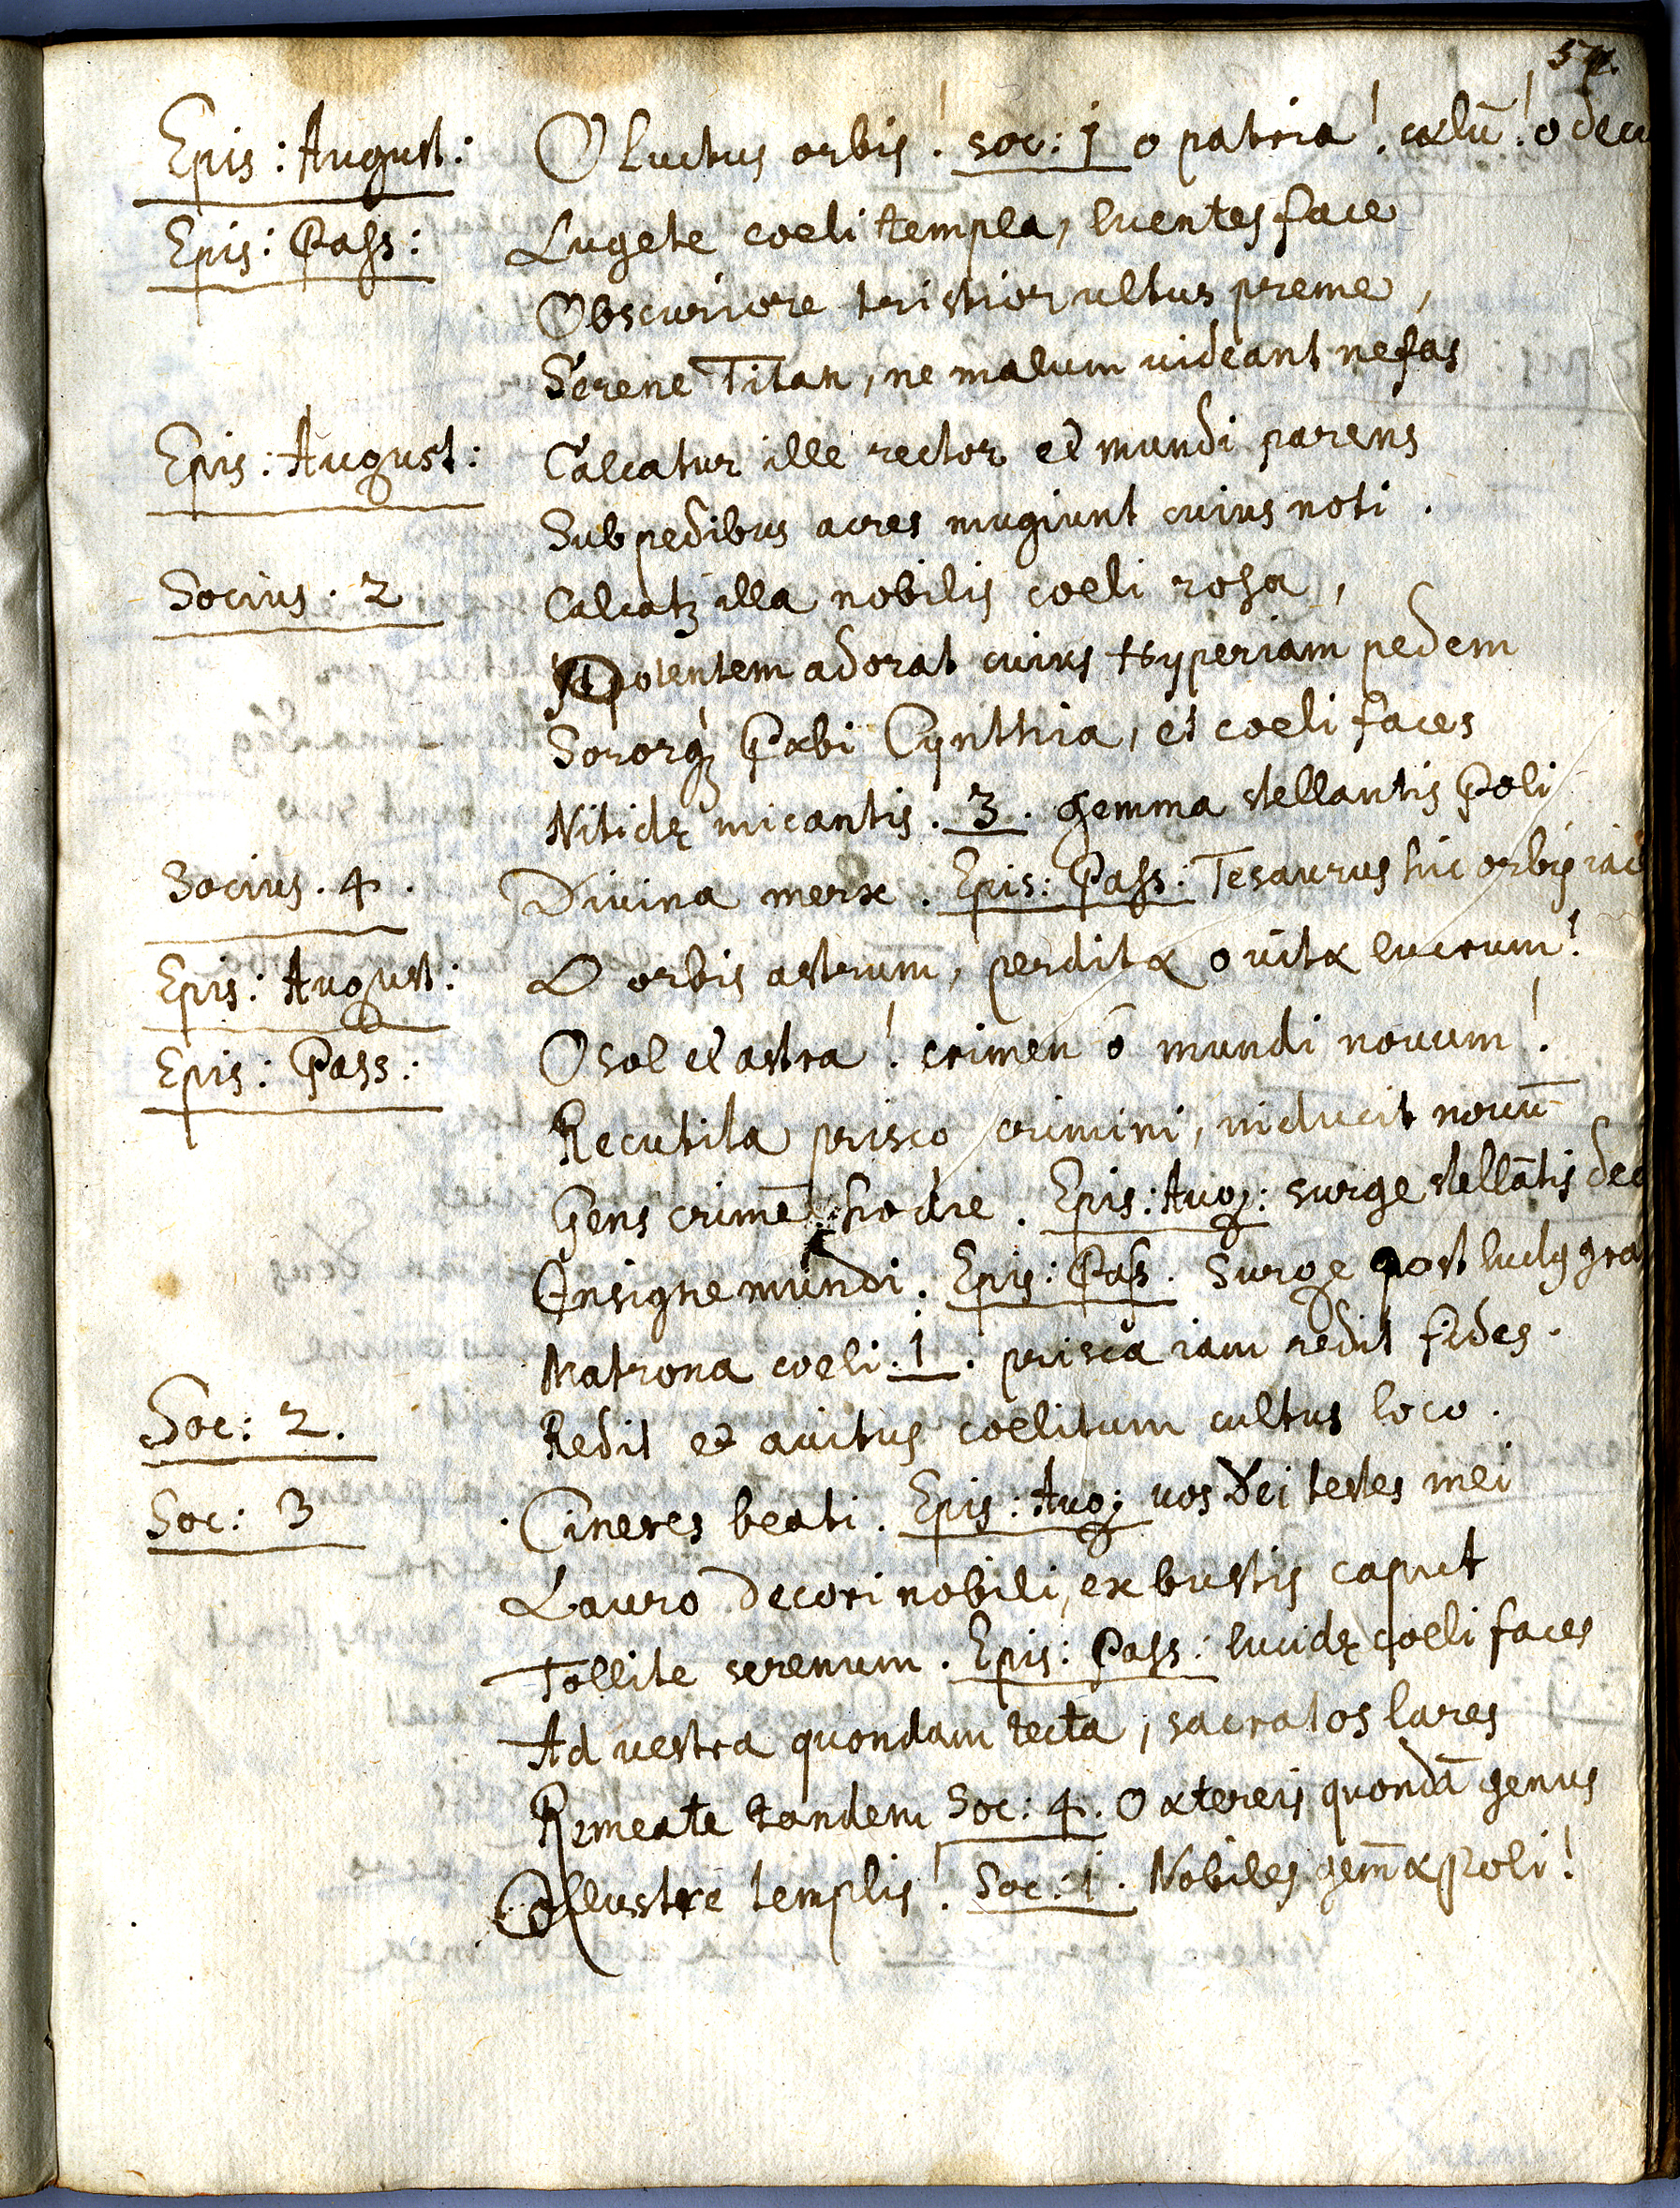 57.
Epis: August: O luctus orbis! soc: 1 o patria! cælū! o decu
Epis: Pass: Lugete coeli templa, luentes face
Obscuriore tristior ultus preme,
Serene Titan, ne malum uideant nefas
Epis: August: Calcatur ille rector et mundi parens
Sub pedibus acres mugiunt cuius noti.
Socius. 2 Calcatꝫ illa nobilis coeli rosa,
Potentem adorat cuius Hyperiam pedem
Sororqꝫ Phæbi Cynthia, et coeli faces
Nitidę micantis. 3. gemma stellantis Poli
Socius. 4. Diuina merx. Epis: Pass: Tesaurus hic orbis iac
Epis: August: O orbis astrum, perditæ o uitæ lucrum!
Epis: Pass: O sol et astra! crimen ô mundi nouum!
Recutita prisco crimini, inducit nouū
Gens crimē hodie. Epis: Aug: surge stellātis dec
Insigne mundi. Epis: Pass. Surge post luctꝫ gra
Matrona coeli. 1. prisca iam redit fides.
Soc: 2. Redit et auitus coelitum cultus loco.
Soc: 3 Cineres beati. Epis: Aug: uos Dei testes mei
Lauro decori nobili, ex bustis caput
Tollite serenum. Epis: Pass: lucidę coeli faces
Ad uestra quondam tecta, sacratos lares
Remeate tandem Soc: 4. O æthereis quondā genus
Illustre templis! Soc: 1. Nobiles gem̄æ Poli!